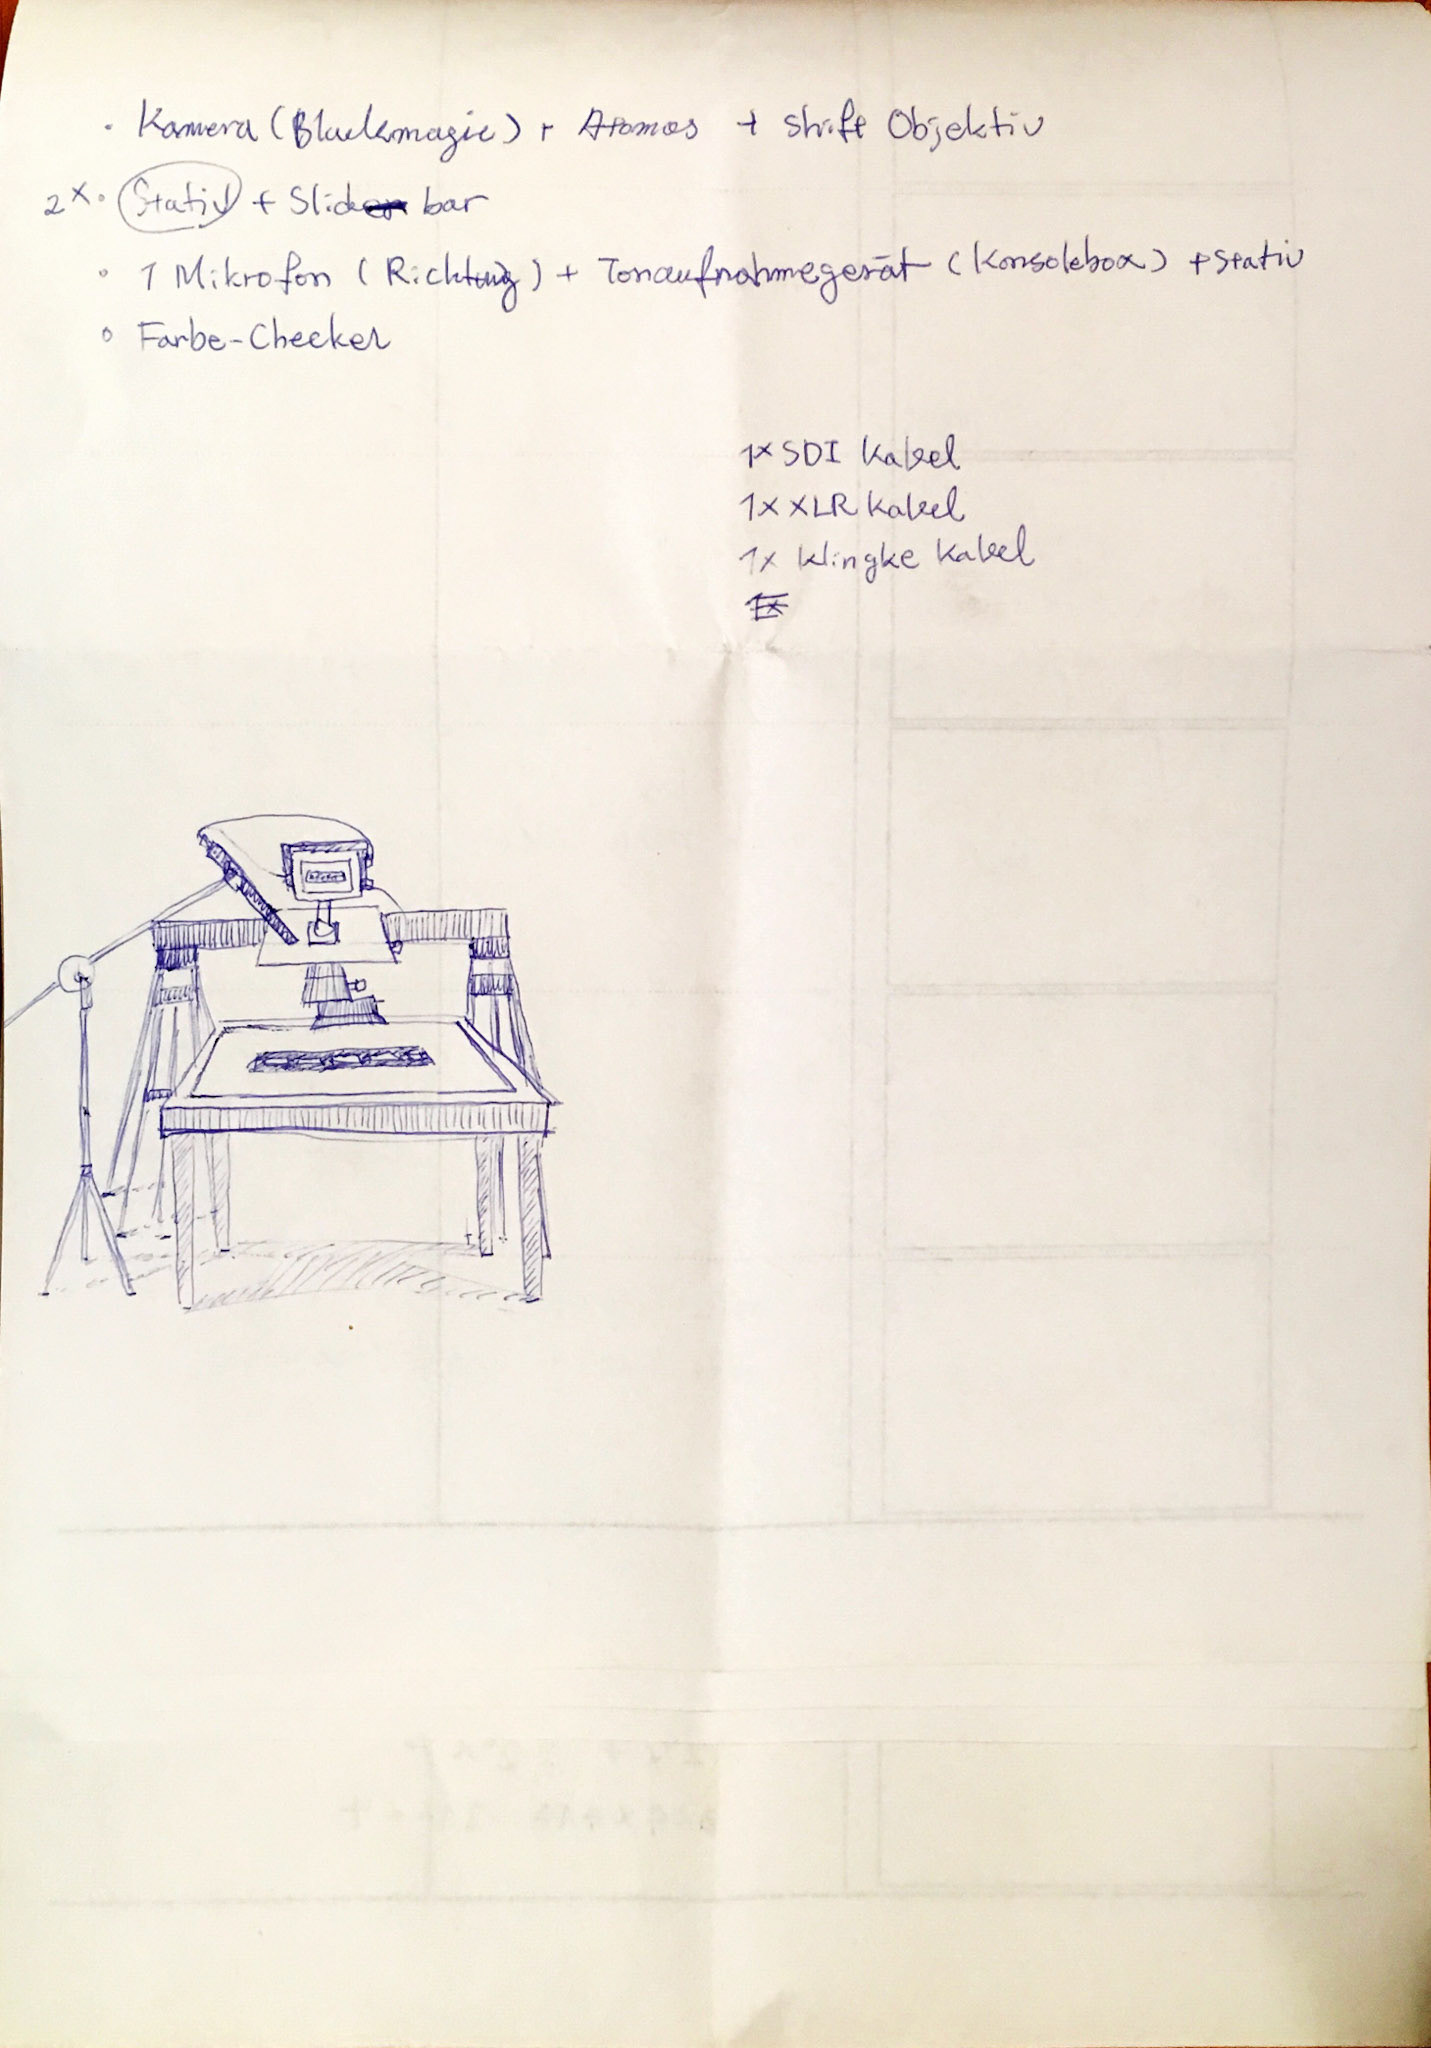 · Kamera (Blackmagic) + Atomos + shift Objektiv
2x · Stativ + Slider bar
· 1 Mikrofon (Richtung) + Tonaufnahmegerät (Konsolebox) + Stativ
· Farbe-Checker
1x SDI Kabel
1x XLR Kabel
1x Klingke Kabel
1x